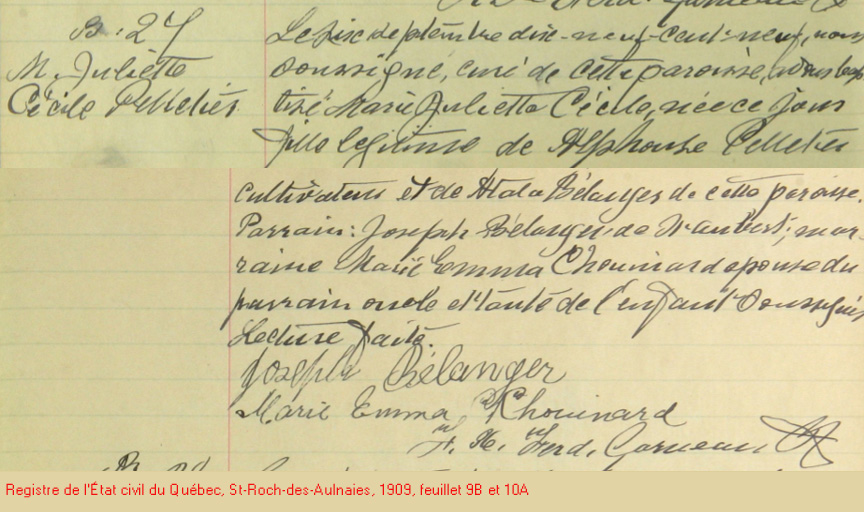 B. 27
M. Juliette
Cécile Pelletier
Le six septembre dix-neuf-cent-neuf, nous
soussigné, curé de cette paroisse, avons bap
tisé Marie Juliette Cécile, née ce jour
fille légitime de Alphonse Pelletier
cultivateur et de Atala Bélanger de cette paroisse.
Parrain: Joseph Bélanger, de St Aubert; mar-
raine Marie Emma Chouinard épouse du
parrain oncle et tante de l'enfant soussignés
Lecture faite.
Joseph Bélanger
Marie Emma Chouinard
F. X. Ferd. Garneau
Registre de l'État civil du Québec, St-Roch-des-Aulnaies, 1909, feuillet 9B et 10A